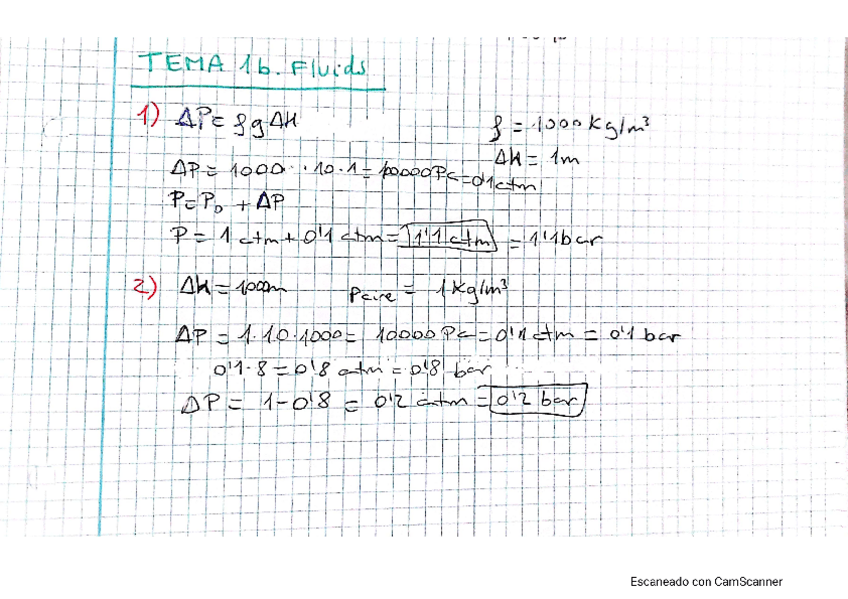 TEMA 1b. Fluids
1) ΔP = ρ g ΔH
ρ = 1000 Kg/m³
ΔH = 1m
ΔP = 1000 · 10 · 1 = 10000 Pa = 0'1 atm
P = P₀ + ΔP
P = 1 atm + 0'1 atm = 1'1 atm = 1'1 bar
2) ΔH = 1000m ρaire = 1 Kg/m³
ΔP = 1 · 10 · 1000 = 10000 Pa = 0'1 atm = 0'1 bar
0'1 · 8 = 0'8 atm = 0'8 bar
ΔP = 1 - 0'8 = 0'2 atm = 0'2 bar
Escaneado con CamScanner